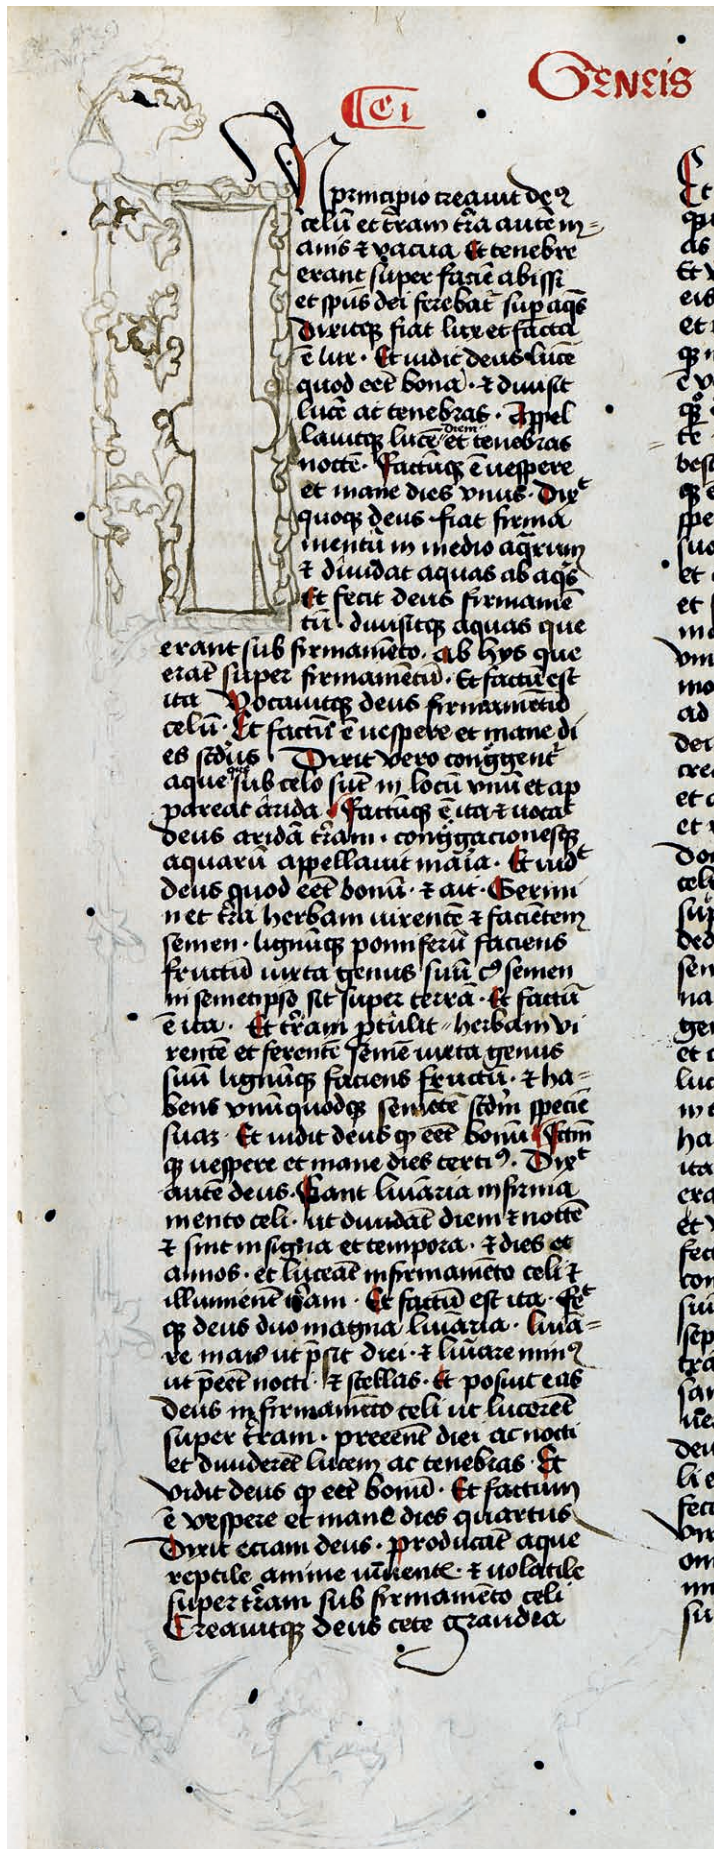 GENEIS
Ca I
N principio creavit deꝰ
celū et t̄ram t̄ra autē in=
anis ⁊ vacua Et tenebre
erant super faciē abissi
et spūs dei ferebat᷑ sup aq̄s
Dixitqꝫ fiat lux et facta
ē lux · Et uidit deus lucē
quod eēt bona · ⁊ diuisit
lucē ac tenebras · Appel
lauitqꝫ lucē diem et tenebras
noctē · Factūqꝫ ē uespere
et mane dies vnus · Dixᵗ
quoqꝫ deus fiat firma
mentū in medio aq̄rum
⁊ diuidat aquas ab aq̄s
Et fecit deus firmamē
tū · diuisitqꝫ aquas que
erant sub firmamēto · ab hys que
erāt super firmamentū · Et factū est
ita Vocauitqꝫ deus firmamentū
celū · Et factū ē uespere et mane di
es scd̄us Dixit vero cong̊gent᷑
aque que sub celo sūt in locū vnū et ap
pareat arida Factūqꝫ ē ita ⁊ uocaᵗ
deus aridā t̄ram · cong̊gacionesqꝫ
aquarū appellauit maria · Et uidᵗ
deus quod eēt bonū · ⁊ ait · Germi
net t̄ra herbam uirentē ⁊ faciētem
semen · lignūqꝫ pomiferū faciens
fructū iuxta genus suū cꝰ semen
in semetipso sit super terrā · Et factū
ē ita · Et t̄ram ptulit herbam vi
rentē et ferentē semē iuxta genus
suū lignūqꝫ faciens fructū · ⁊ ha=
bens vnūquodqꝫ semētē scdm̄ speciē
suaꝫ · Et uidit deus ꝙ eēt bonū Fctm̄
qꝫ uespere et mane dies terciꝰ · Dixᵗ
autē deus · Fiant luīaria in firma
mento celi · ut diuidāt diem ⁊ noctē
⁊ sint in signa et tempora · ⁊ dies et
annos · et luceāt in firmamēto celi ⁊
illuminent t̄ram · Et factū est ita · Feᵗ
qꝫ deus duo magna luīaria · luīa=
re maiꝰ ut p̄sit diei · ⁊ luīare minꝰ
ut p̄eēt nocti · ⁊ stellas · Et posuit eas
deus in firmamēto celi ut lucerēt
super t̄ram · preeēnt diei ac nocti
et diuiderēt lucem ac tenebras · Et
vidit deus ꝙ eēt bonū · Et factum
ē vespere et mane dies quartus
Dixit eciam deus · producāt aque
reptile anime uiuentꝭ · ⁊ uolatile
super t̄ram sub firmamēto celi
Creauitqꝫ deus cete grandia